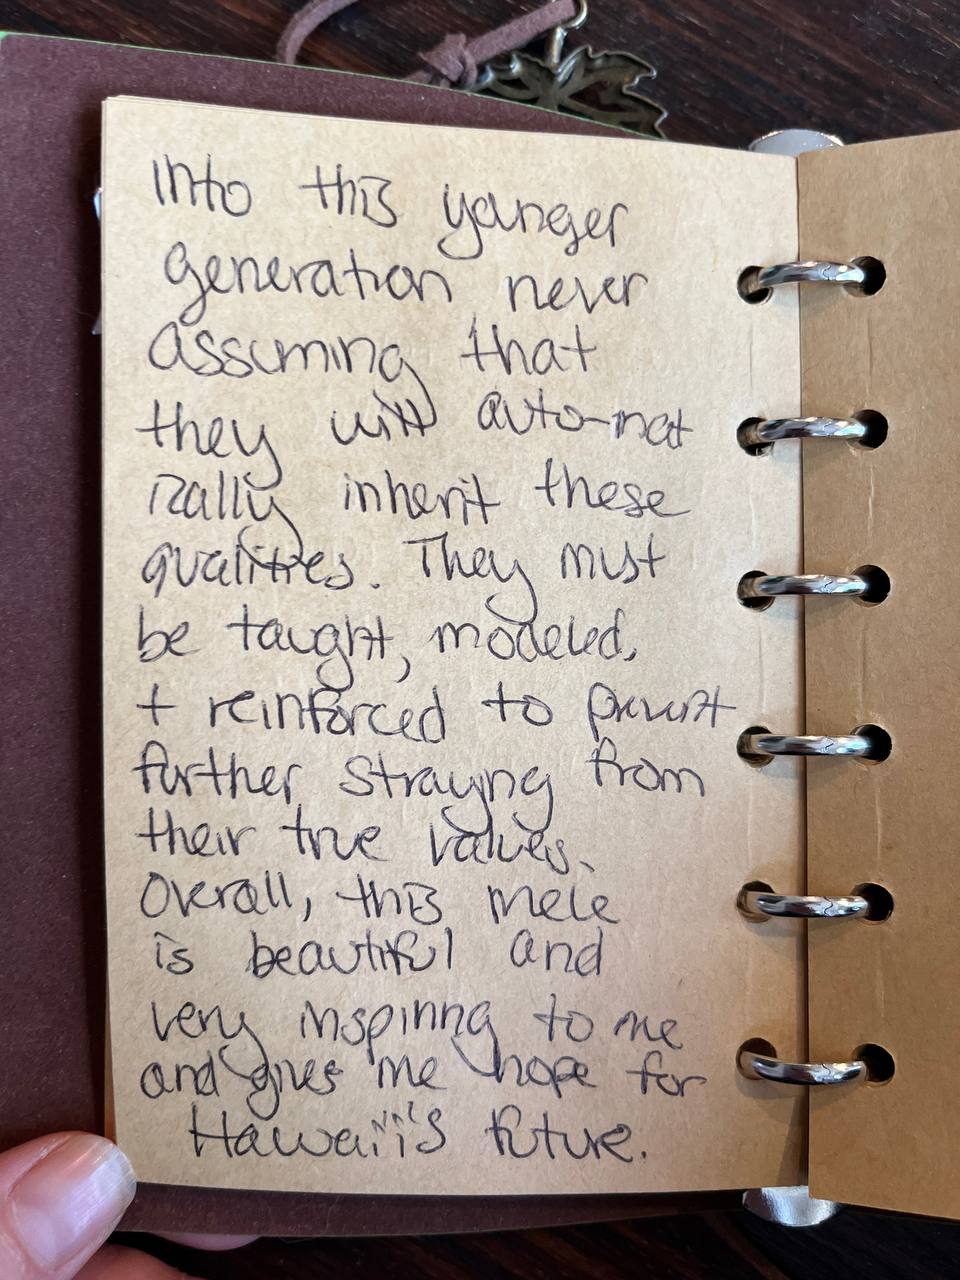 into this younger
generation never
assuming that
they will auto-mat
ically inherit these
qualities. They must
be taught, modeled,
+ reinforced to prevent
further straying from
their true values.
Overall, this mele
is beautiful and
very inspiring to me
and gives me hope for
Hawaii's future.